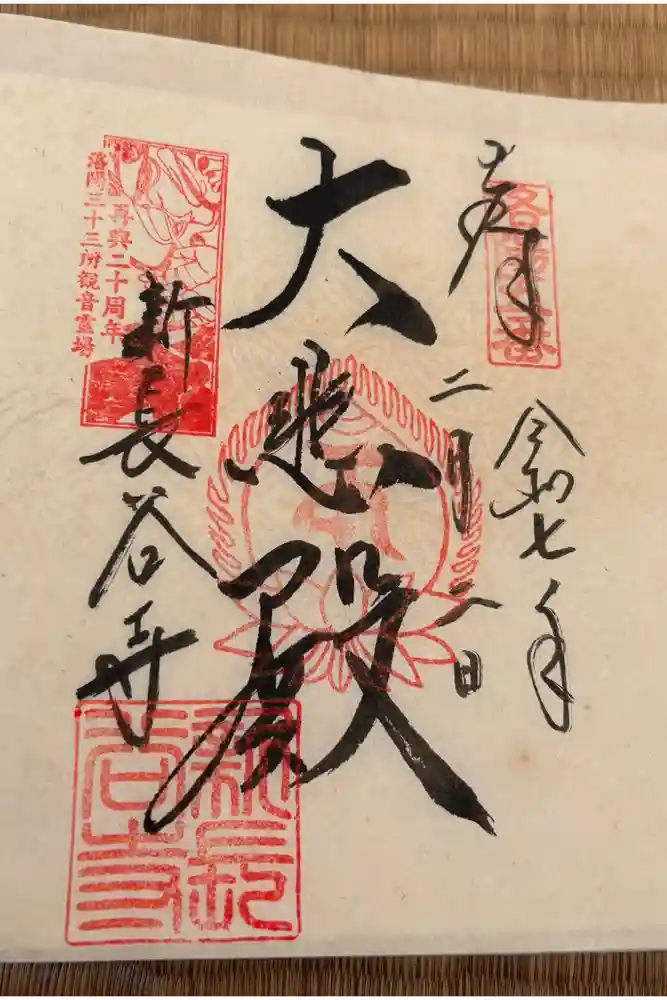 奉拝
令和七年
二月二日
大悲殿
新長谷寺
再興二十周年
洛陽三十三所観音霊場
新長谷寺